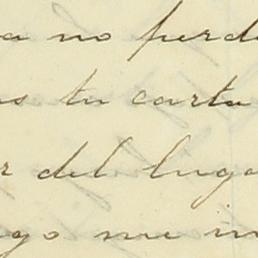 a no perd
s tu carta
r del luga
go me in